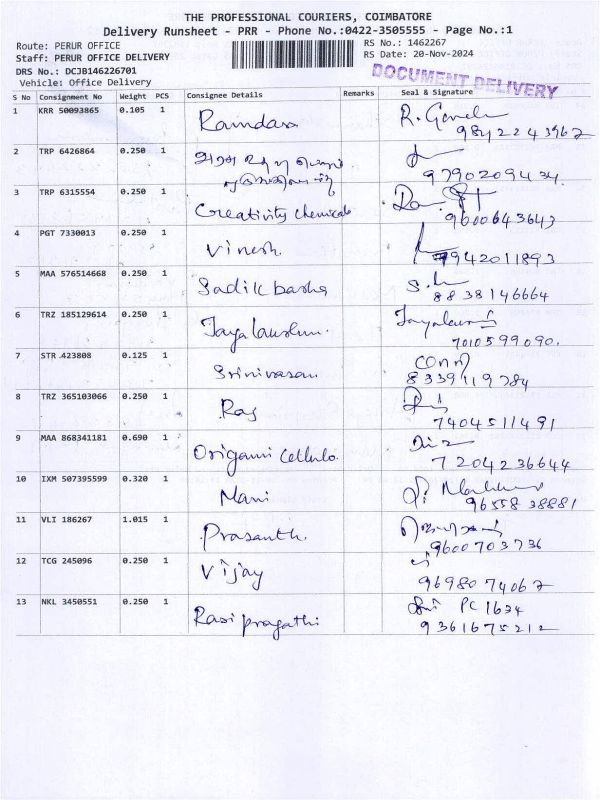 THE PROFESSIONAL COURIERS, COIMBATORE
Delivery Runsheet - PRR - Phone No.:0422-3505555 - Page No.:1
Route: PERUR OFFICE
RS No.: 1462267
Staff: PERUR OFFICE DELIVERY
RS Date: 20-Nov-2024
DRS No.: DCJB146226701
Vehicle: Office Delivery
DOCUMENT DELIVERY
S No Consignment No Weight PCS Consignee Details Remarks Seal & Signature
1 KRR 50093865 0.105 1 Ramdass
9842243967
2 TRP 6426864 0.250 1
9790209434
3 TRP 6315554 0.250 1 Creativity chemicals
9600643643
4 PGT 7330013 0.250 1 Vinesh
9942011893
5 MAA 576514668 0.250 1 Sadik basha
8838146664
6 TRZ 185129614 0.250 1 Jayalakshmi
7010599090.
7 STR 423808 0.125 1 Srinivasan
8339119784
8 TRZ 365103066 0.250 1 Raj
7404511491
9 MAA 868341181 0.690 1 Origami Cellulo.
7204236644
10 IXM 507395599 0.320 1 Mani
9655838881
11 VLI 186267 1.015 1 Prasanth.
9600703736
12 TCG 245096 0.250 1 Vijay
9698074067
13 NKL 3450551 0.250 1 Rasi pragathi PC 1634
9361675212